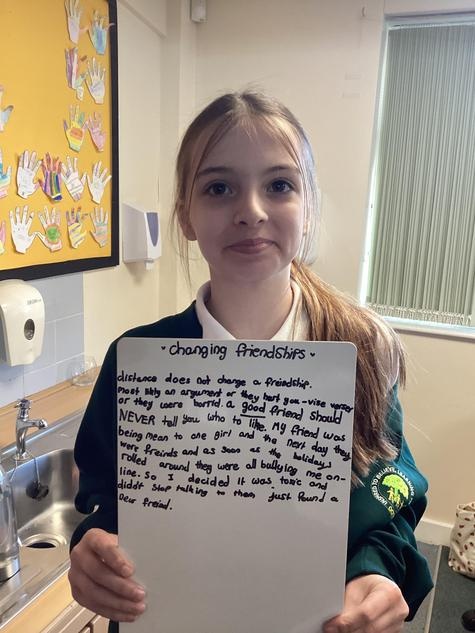 changing friendships
distance does not change a freindship.
most likly an argument or they hurt you - vise verser
or they were horrid. a good friend should
NEVER tell you who to like. My friend was
being mean to one girl and the next day they
were freinds and as soon as the holidays
rolled around they were all bullying me on-
line. So I decided it was toxic and
diddt stop talking to them just found a
new freind.
INSPIRED TO BELIEVE, LEARNING